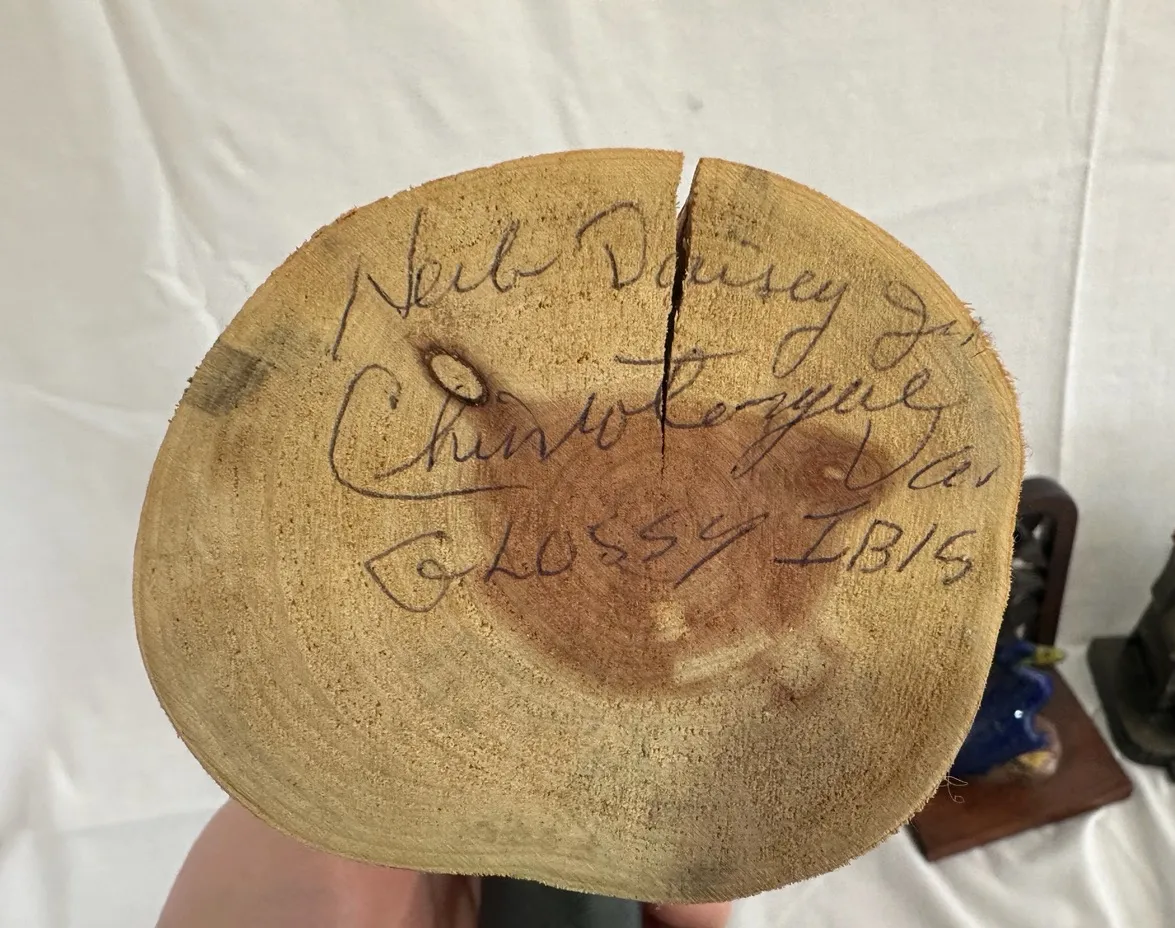 Herb Daisey Jr,
Chincoteague
Va.
GLOSSY IBIS